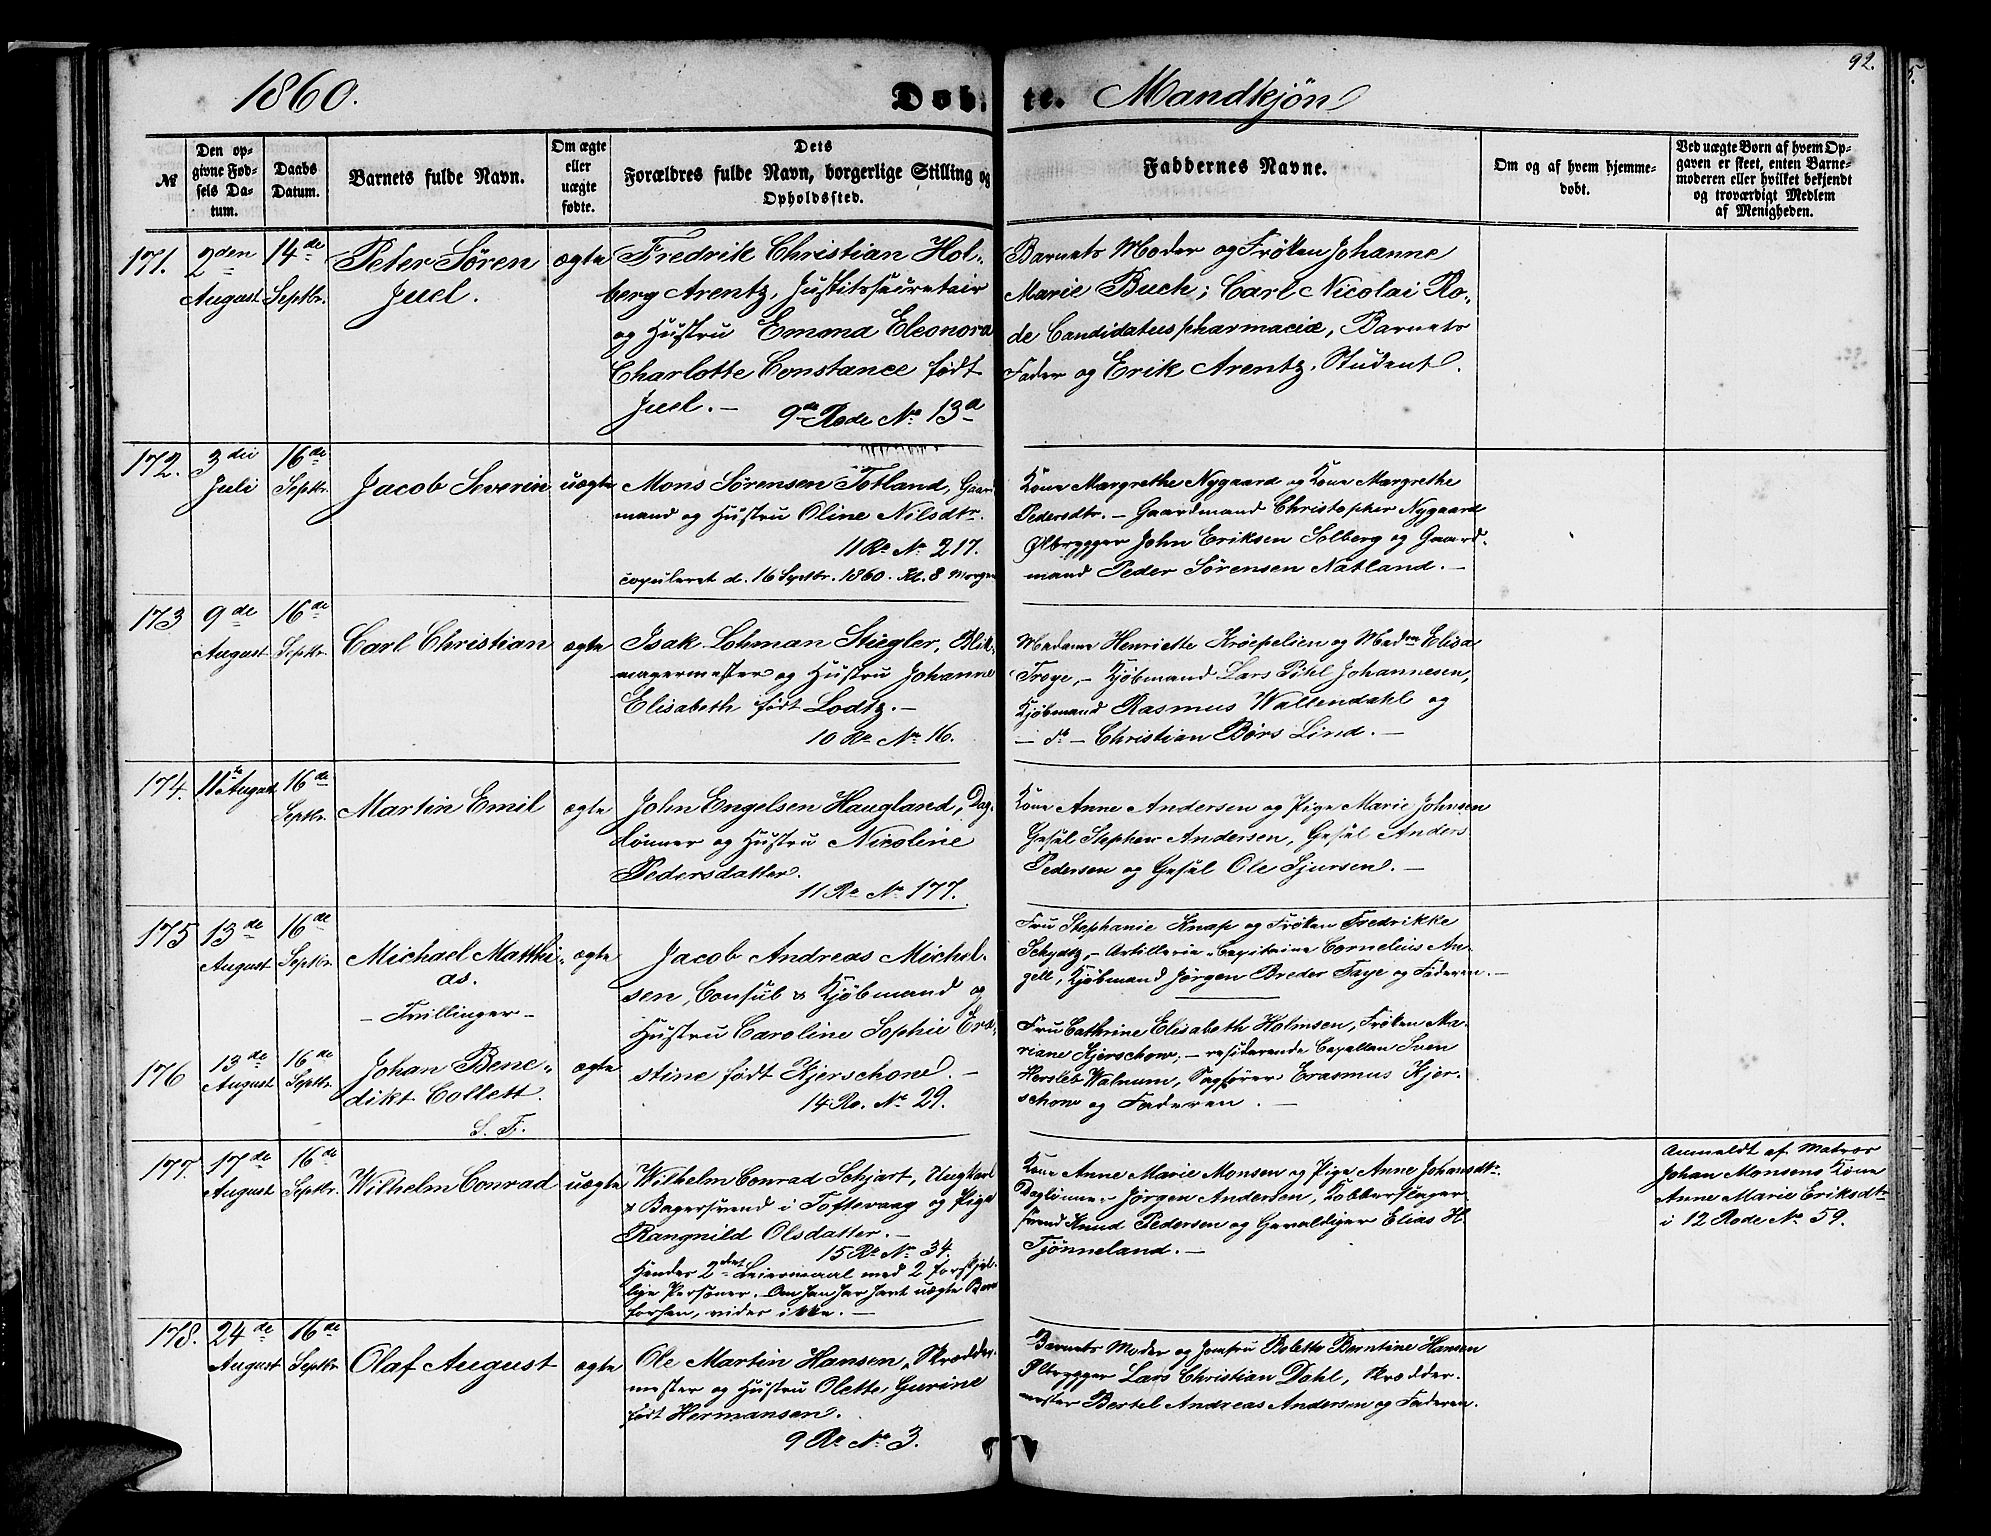 92.
1860.
Døbte. Mandkjøn
№
Den opgivne Fødsels Datum.
Daabs Datum.
Barnets fulde Navn.
Om ægte eller uægte fødte.
Dets Forældres fulde Navn, borgerlige Stilling og Opholdssted.
Faddernes Navne.
Om og af hvem hjemmedøbt.
Ved uægte Børn af hvem Opgaven er skeet, enten Barnemoderen eller hvilket bekjendt og troværdigt Medlem af Menigheden.
171.
2den August
14de Septbr.
Peter Søren
Juel.
ægte
Fredrik Christian Hol-
berg Arentz, Justitssecretair
og Hustru Emona Eleonora
Charlotte Constance født
Juel. –
9de Rode No 13a
Barnets Moder og Frøken Johanne
Marie Buch; Carl Nicolai Ro-
de Candidatus pharmaciæ, Barnets
Fader og Erik Arentz, Student.
172.
3die Juli
16de Septbr.
Jacob Severin
uægte
Mons Sørensen Totland, Gaard
mand og Hustru Oline Nilsdtr.
11 Ro No 217.
copuleret d. 16 Septbr. 1860. Kl. 8 Morgen
Kone Margrethe Nygaard og Kone Margrethe
Pedersdtr. – Gaardmand Christopher Nygaard
Ølbrygger John Eriksen Solberg og Gaard-
mand Peder Sørensen Natland. –
173
9de August
16de Septbr.
Carl Christian
ægte
Isak Lohman Stiegler, Blik-
magermester og Hustru Johanne
Elisabeth født Lodtz. –
10 Ro No 16.
Madame Henriette Krøepelien og Madm Elisa
Troye, – Kjøbmand Lars Pihl Johannesen,
Kjøbmand Rasmus Wallendahl og
– do – Christian Børs Lind. –
174.
11te August
16de Septbr.
Martin Emil
ægte
John Engelsen Haugland, Dag-
lønner og Hustru Nicoline
Pedersdatter.
11 Ro No 177.
Kone Anne Andersen og Pige Marie Johnsen
Gesel Stephen Andersen, Gesel Anders
Pedersen og Gesel Ole Sjursen. –
175
13de August
16de Septbr.
Michael Matthi-
as.
– Tvillinger –
ægte
Jacob Andreas Michel-
sen, Consul & Kjøbmand og
Hustru Caroline Sophie Era-
stine født Kjerschow. –
14 Ro. No 29.
Fru Stephanie Knap og Frøken Fredrikke
Schydtz, – Artillerie-Capitaine Cornelius An-
gell, Kjøbmand Jørgen Breder Faye og Faderen. –
176
13de August
16de Septbr.
Johan Bene-
dikt Collett.
S. F.
ægte
Fru Cathrine Elisabeth Holmsen, Frøken Ma-
riane Kjerschow, – residerende Capellan Sven
Hersleb Walnum, Sagfører Erasmus Kjer-
schow og Faderen. –
177.
17de August
16de Septbr.
Wilhelm Conrad
uægte
Wilhelm Conrad Schjørt, Ungkarl
& Bagersvend i Toftevaag og Pige
Rangnild Olsdatter. –
15 Ro No 34.
Hendes 2det Leiermaal med 2 forskjel-
lige Personer. –
forhen, vides ikke. –
Kone Anne Marie Monsen og Pige Anne Johansdtr.
Daglønner Jørgen Andersen, Kobberslager-
svend Knud Pedersen og Gevaldiger Elias H.
Tjønneland. –
Anmeldt af Matros
Johan Monsens Kone
Anne Marie Eriksdtr
i 12 Rode No 59.
178.
24de August
16de Septbr.
Olaf August
ægte
Ole Martin Hansen, Skrædder-
mester og Hustru Olette Gurine
født Hermansen.
9 Ro No 3.
Barnets Moder og Jomfru Bolette Berntine Hansen
Ølbrygger Lars Christian Dahl, Skrædder-
mester Bertel Andreas Andersen og Faderen.